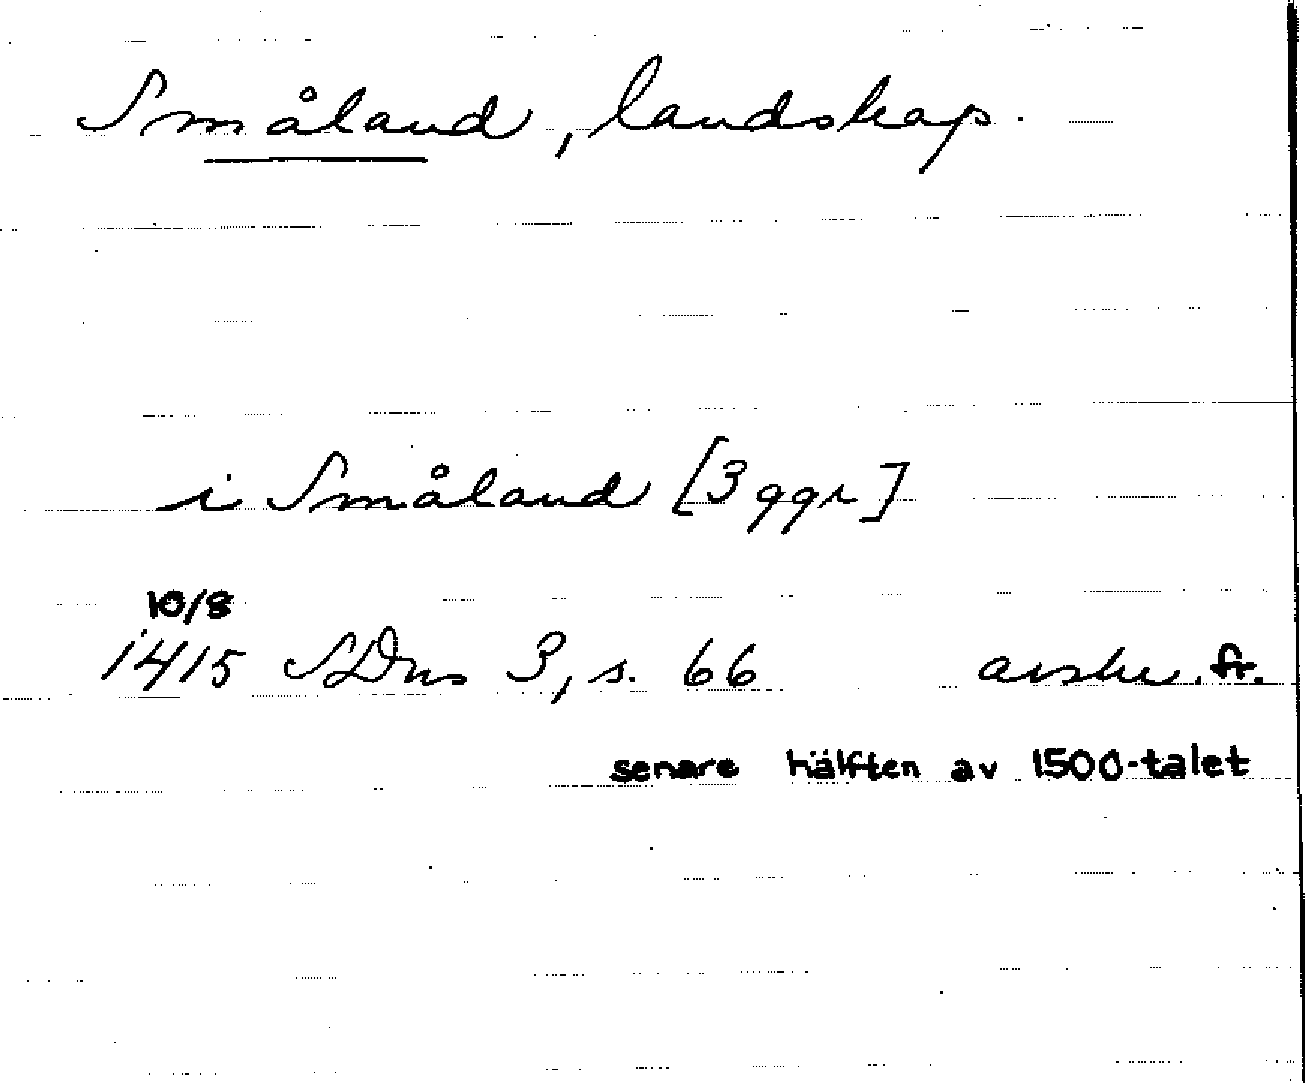 Småland, landskap.
i Småland [3 ggr]
10/8
1415 SDns 3, s. 66 avskr. fr.
senare hälften av 1500-talet